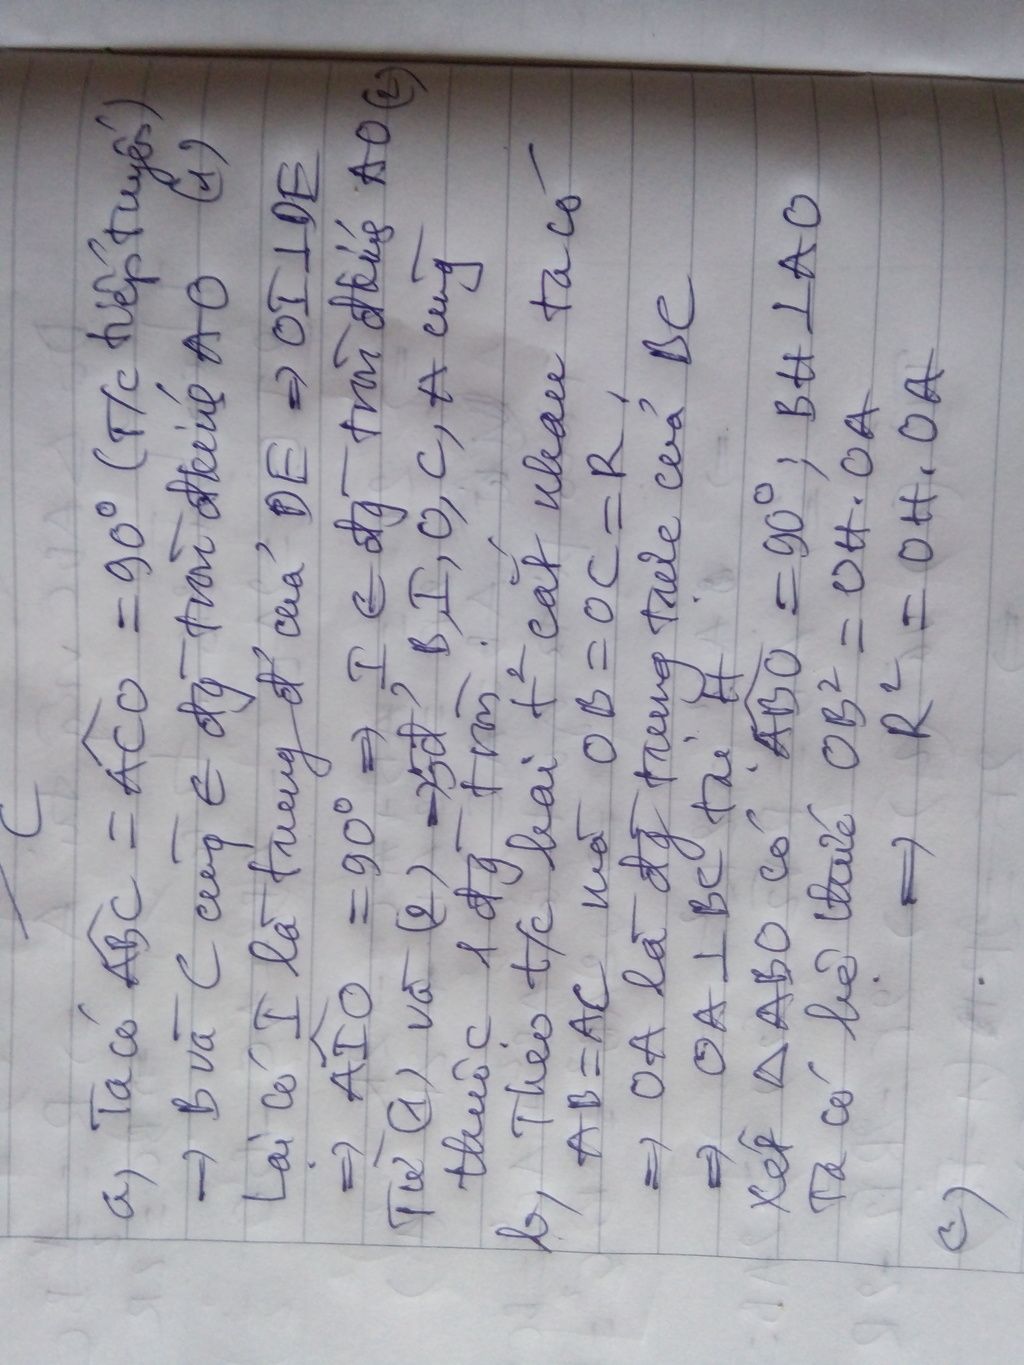 C
a) Ta có ABC = ACO = 90° (T/c tiếp tuyến)
=> B và C cùng ∈ đg tròn đkính AO (1)
Lại có I là trung đ' của DE => OI ⊥ DE
=> AIO = 90° => I ∈ đg tròn đkính AO (2)
Từ (1) và (2) => 5đ' B, I, O, C, A cùng
thuộc 1 đg tròn.
b) Theo t/c hai t² cắt nhau ta có
AB = AC mà OB = OC = R,
=> OA là đg trung trực của BC
=> OA ⊥ BC tại H
Xét △ ABO có ABO = 90°; BH ⊥ AO
Ta có hệ thức OB² = OH.OA
=> R² = OH.OA
c)